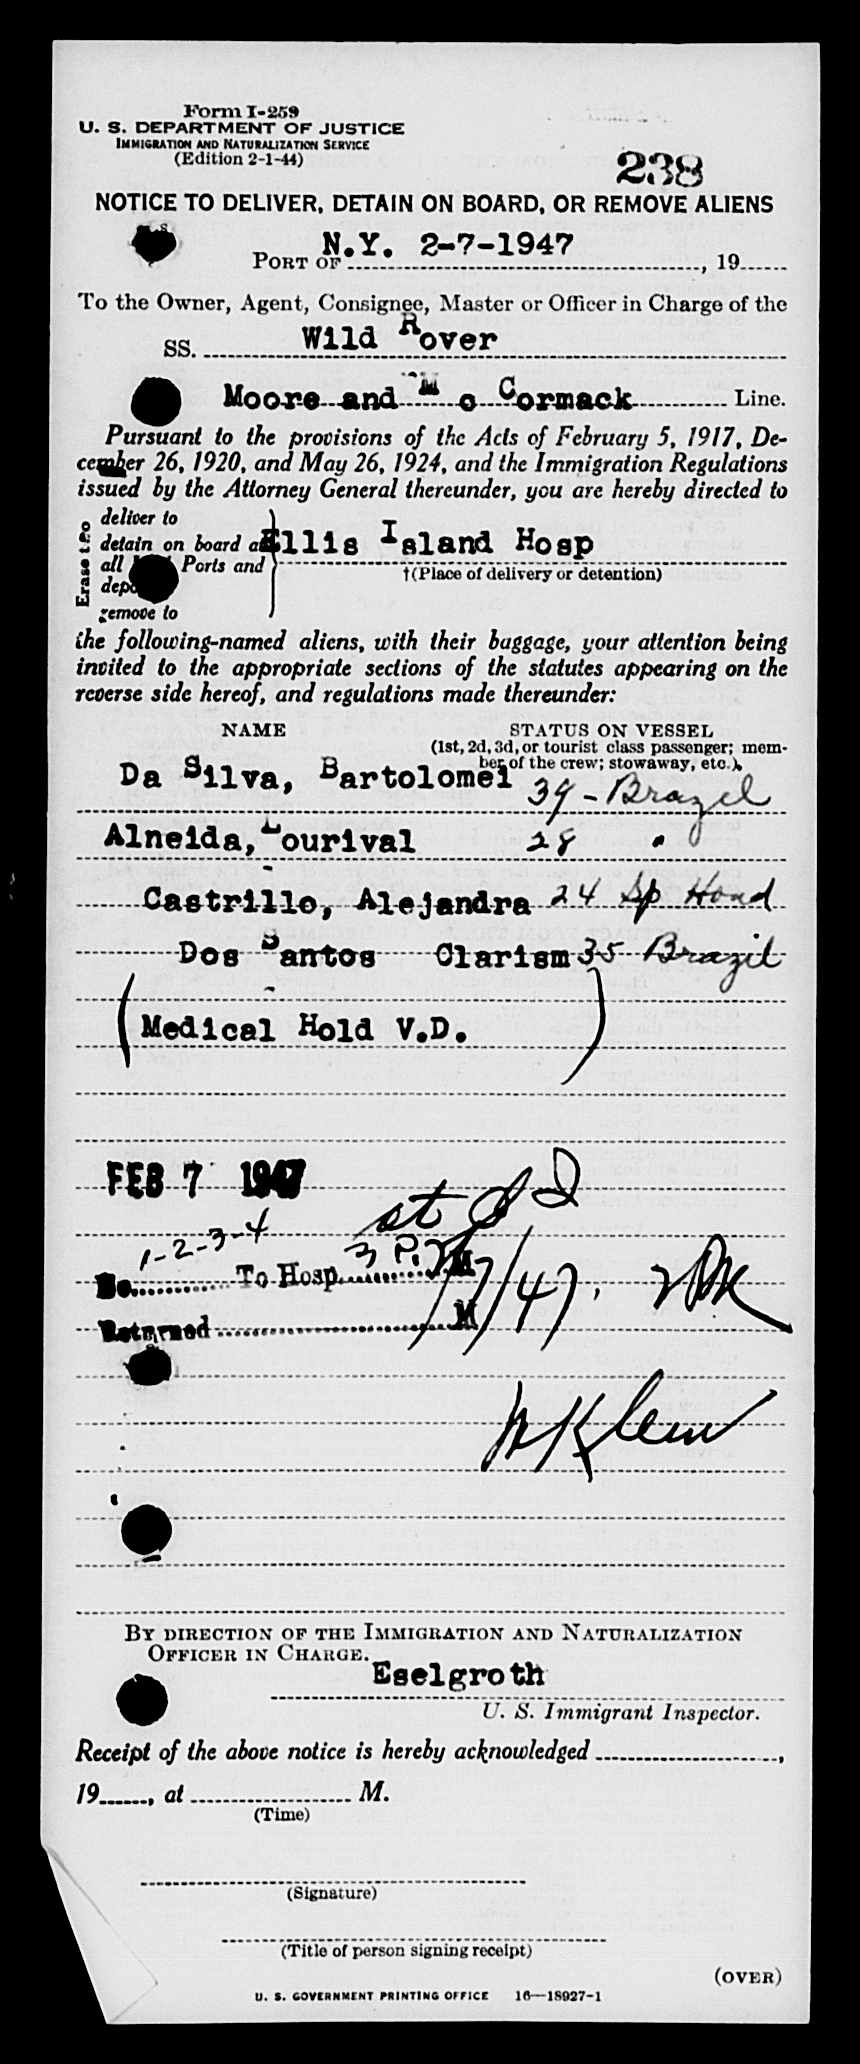 Form I-259
U. S. DEPARTMENT OF JUSTICE
IMMIGRATION AND NATURALIZATION SERVICE
(Edition 2-1-44)
238
NOTICE TO DELIVER, DETAIN ON BOARD, OR REMOVE ALIENS
PORT OF N.Y. 2-7-1947, 19
To the Owner, Agent, Consignee, Master or Officer in Charge of the
SS. Wild Rover
Moore and Mc Cormack Line.
Pursuant to the provisions of the Acts of February 5, 1917, De-
cember 26, 1920, and May 26, 1924, and the Immigration Regulations
issued by the Attorney General thereunder, you are hereby directed to
Erase two
deliver to
detain on board at
all Ports and
remove to
Ellis Island Hosp
†(Place of delivery or detention)
the following-named aliens, with their baggage, your attention being
invited to the appropriate sections of the statutes appearing on the
reverse side hereof, and regulations made thereunder:
NAME STATUS ON VESSEL
(1st, 2d, 3d, or tourist class passenger; mem-
ber of the crew; stowaway, etc.)
Da Silva, Bartolomei 39 - Brazil
Alneida, Lourival 28 "
Castrillo, Alejandra 24 Sp Hond
Dos Santos Clarism 35 Brazil
(Medical Hold V.D.)
FEB 7 1947
1-2-3-4
No. To Hosp. 3 P. M
/7/47.
Returned M
W Klein
BY DIRECTION OF THE IMMIGRATION AND NATURALIZATION
OFFICER IN CHARGE.
Eselgroth
U. S. Immigrant Inspector.
Receipt of the above notice is hereby acknowledged ,
19 , at M.
(Time)
(Signature)
(Title of person signing receipt)
(OVER)
U. S. GOVERNMENT PRINTING OFFICE 16—18927-1